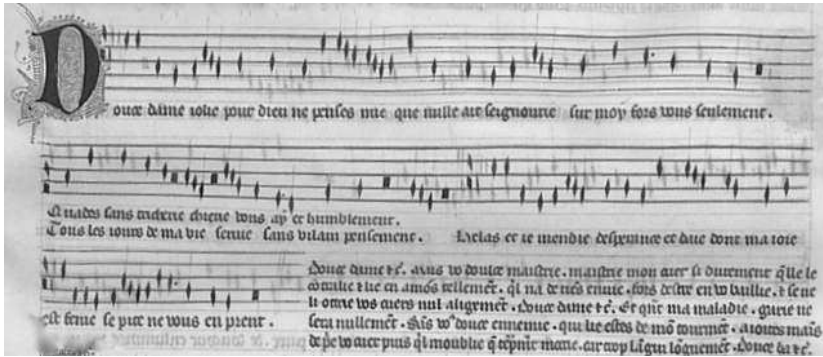 Douce dame iolie pour dieu ne penses mie que nulle ait seignourie sur moy fors vous seulement.
Quades sans tricherie chierie vous ay et humblement.
Tous les iours de ma vie servie sans vilain pensement. Helas et ie mendie desperance et daie dont ma ioie
est fenie se pite ne vous en prent.
Douce dame &c. mais vo douce maistrie. maistrie mon cuer si durement quelle le
contralie et lie en amors tellement. qil na de riens envie. fors destre en vo baillie. & se ne
li ottrie vos cuers nul aligement. Douce dame &c. Et quant ma maladie. garie ne
sera nullement. Sans vous douce ennemie. qui lie estes de mon tourment. a iointes mains
de pe vo cuer puis qil moublie que temprement mocie. car trop langui longuement. Douce da &c.